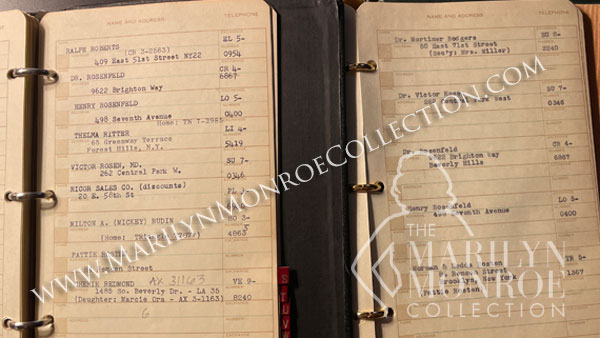 NAME AND ADDRESS TELEPHONE
RALPH ROBERTS (CR 3-2563) EL 5-
409 East 51st Street NY22 0954
DR. ROSENFELD CR 4-
6867
9622 Brighton Way
HENRY ROSENFELD LO 5-
498 Seventh Avenue 0400
Home: TN 7-2585
THELMA RITTER LI 4-
65 Greenway Terrace 5419
Forest Hills, N.Y.
VICTOR ROSEN, MD. SU 7-
262 Central Park W. 0346
RICOR SALES CO. (discounts) PL
20 E. 58th St
MILTON A. (MICKEY) RUDIN BO 3-
5
(Home: 4863
PATTIE
Street
REDMOND AX 31163 VE 9-
1485 So. Beverly Dr. - LA 35 8240
(Daughter: Marcie Ora - AX 3-1163)
6
S T U V W
NAME AND ADDRESS TELEPHONE
Dr. Mortimer Rodgers BU 8-
50 East 71st Street 2240
(Sec'y: Mrs. Miller)
Dr. Victor SU 7-
262 Central Park West 0346
Dr. Rosenfeld CR 4-
9622 Brighton Way 6867
Beverly Hills
Henry Rosenfeld LO 5-
498 Seventh Avenue 0400
Norman & Hedda Rosten
Remsen Street 1367
Brooklyn, New York
(Pattie Rosten)
WWW.MARILYNMONROECOLLECTION.COM
THE
MARILYN
MONROE
COLLECTION